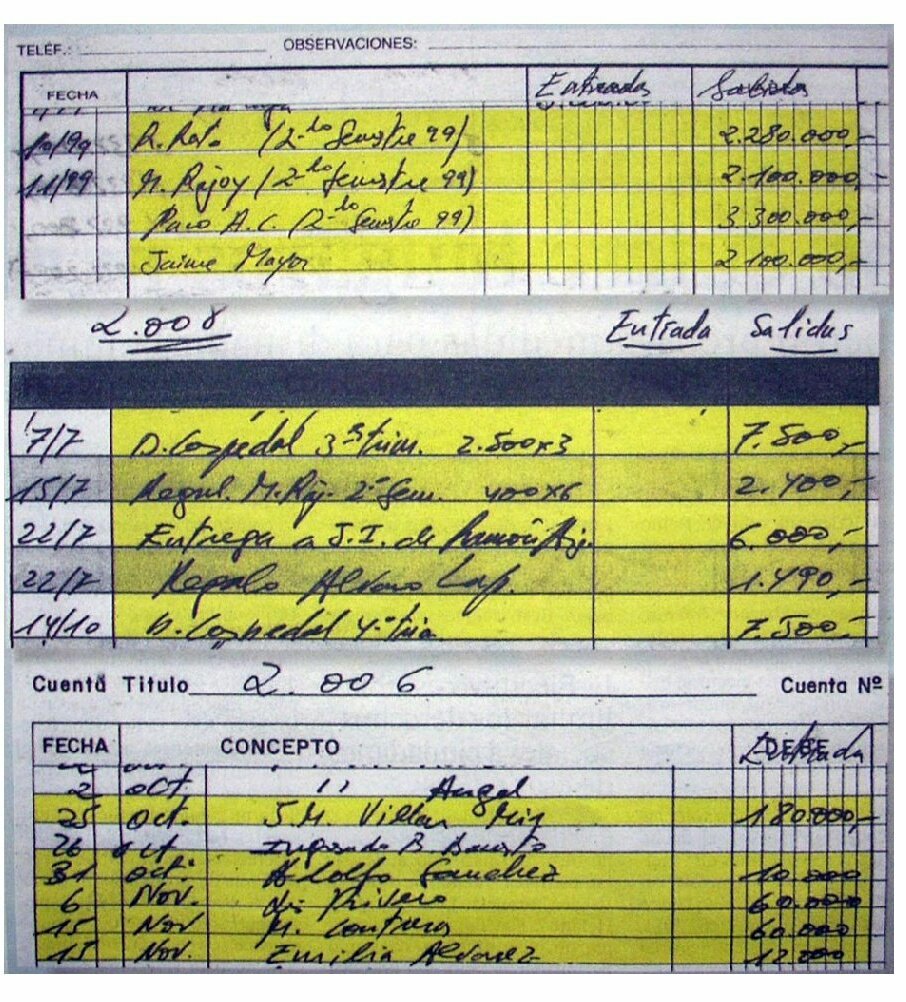 TELÉF.: OBSERVACIONES:
FECHA Entrada Salida
10/99 R. Rato (2-do Semstre 99) 2.280.000,-
11/99 M. Rajoy (2-do semstre 99) 2.100.000,-
Paco A.C. (2-do Semstre 99) 3.300.000,-
Jaime Mayor 2.100.000,-
2.008 Entrada Salidas
7/7 D. Cospedal 3º trim. 2.500x3 7.500,-
15/7 Regul. M. Raj. 2º Sem. 400x6 2.400,-
22/7 Entrega a J.I. de 6.000,-
22/7 Regalo Alvaro Lap. 1.490,-
14/10 D. Cospedal 4º trim 7.500,-
Cuenta Titulo 2.006 Cuenta Nº
FECHA CONCEPTO DEBE Entrada
2 oct " Angel
25 oct. J.M. Villar Mir 180.000,-
26 oct Ingresado B
31 oct. Adolfo Sanchez 10.000
6 Nov. L. Rivero 60.000
15 Nov M. Contreras 60.000
15 Nov. Emilio Alvarez 12.000